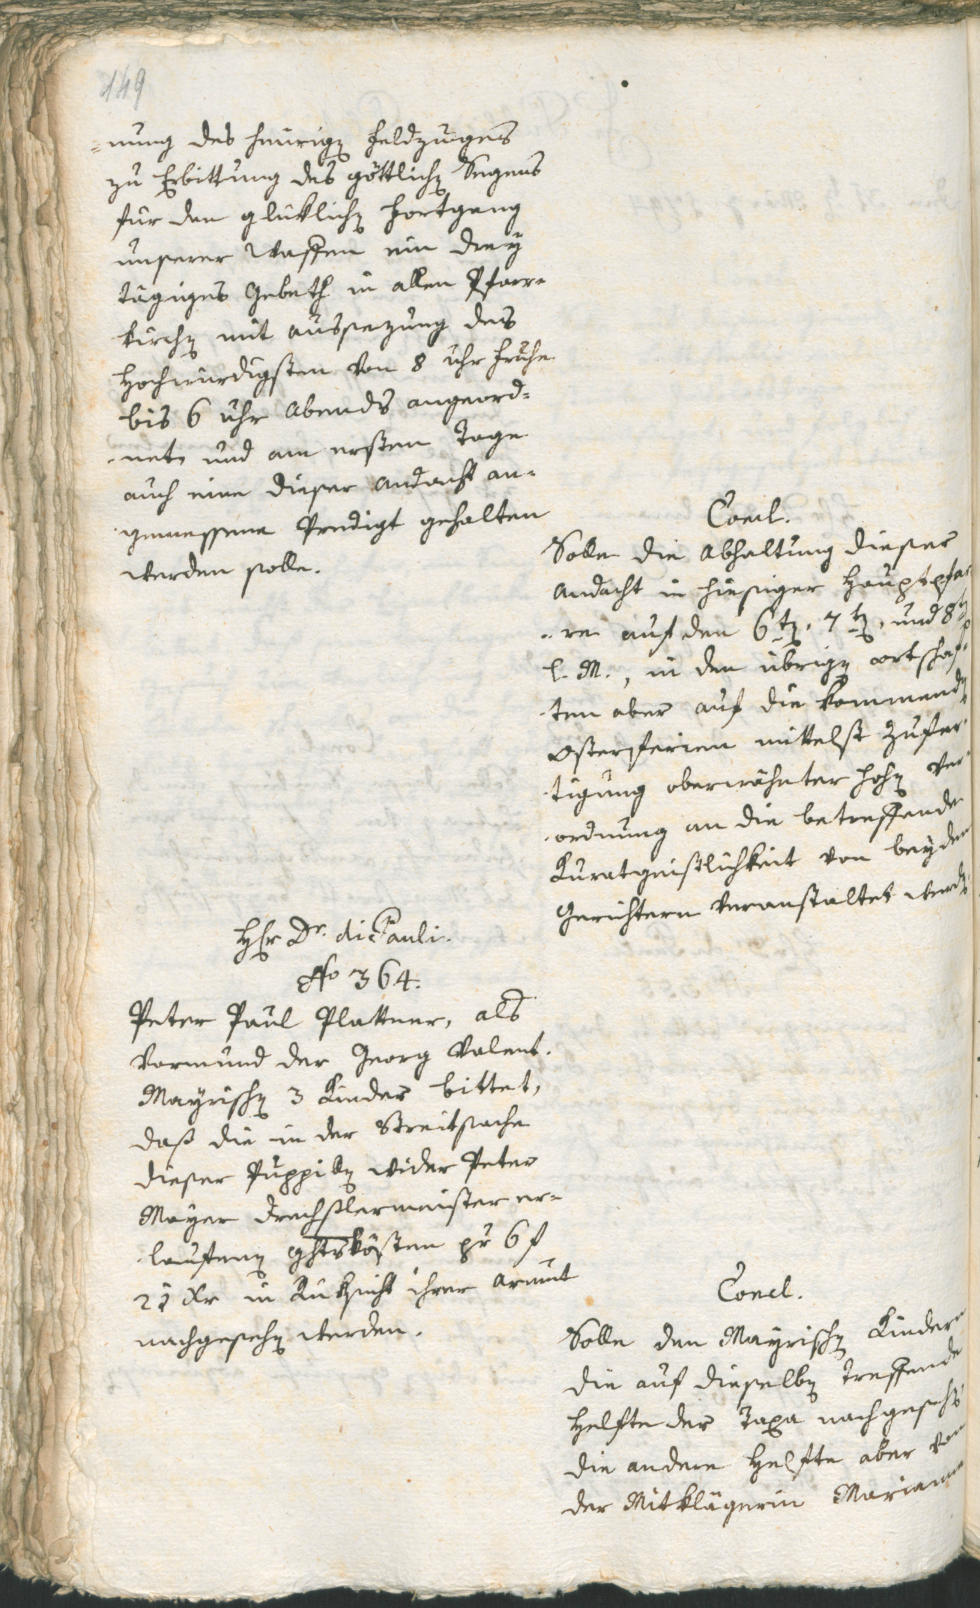 149
=nung des heurigen Feldzuges
zu Erbittung des göttlichen Segens
für den glüklichen Fortgang
unserer Waffen ein drey
tägiges Gebeth in allen Pfarr=
kirchen mit aussezung des
Hochwürdigsten von 8 Uhr Fruhe
bis 6 Uhr Abends angeord=
=net, und am ersten Tage
auch eine dieser Andacht an=
gemessene Predigt gehalten
werden solle.
Concl.
Solle die Abhaltung dieser
Andacht in hiesiger Hauptpfar
=re auf den 6ten, 7ten, und 8ten
l. M., in den übrigen ortschaf=
=ten aber auf die kommenden
Osterferien mittelst Zufer=
=tigung oberwähnter hohen Ver=
=ordnung an die betreffende
Kuratgeistlichkeit von beyden
Gerichtern veranstaltet werden
Herr Dr. di Pauli.
No 364.
Peter Paul Plattner, als
Vormund der Georg Valent.
Mayrischen 3 Kinder bittet,
daß die in der Streitsache
dieser Puppillen wider Peter
Mayer Drechslermeister er=
=laufenen Ghtskösten pr 6 f
21 Xr in Rüksicht ihrer Armut
nachgesehen werden.
Concl.
Solle den Mayrischen Kindern
die auf dieselben treffende
Helfte der Taxa nachgesehen
die andere Helfte aber von
der Mitklägerin Marianna